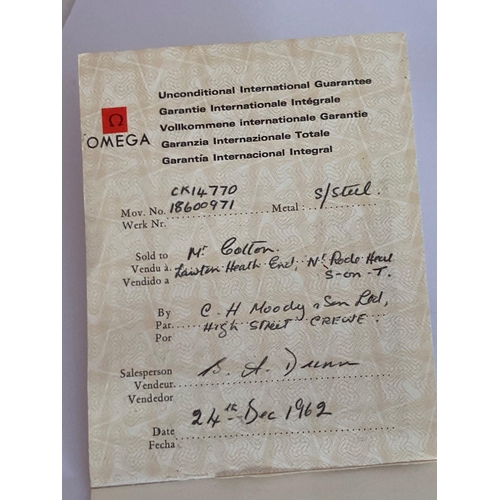 Unconditional International Guarantee
Garantie Internationale Intégrale
Vollkommene internationale Garantie
Garanzia Internazionale Totale
Garantía Internacional Integral
Ω
OMEGA
CK14770
Mov. No. 18600971 Metal: S/Steel
Werk Nr.
Sold to Mr Cotton.
Vendu à. Lawton Heath End, Nr Rode Heath
Vendido a S-on-T.
By C. H Moody & Son Ltd,
Par High Street CREWE.
Por
Salesperson B. A. Dunn
Vendeur
Vendedor
24th Dec 1962
Date
Fecha